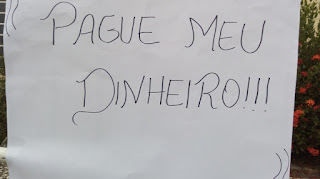 PAGUE MEU
DINHEIRO!!!